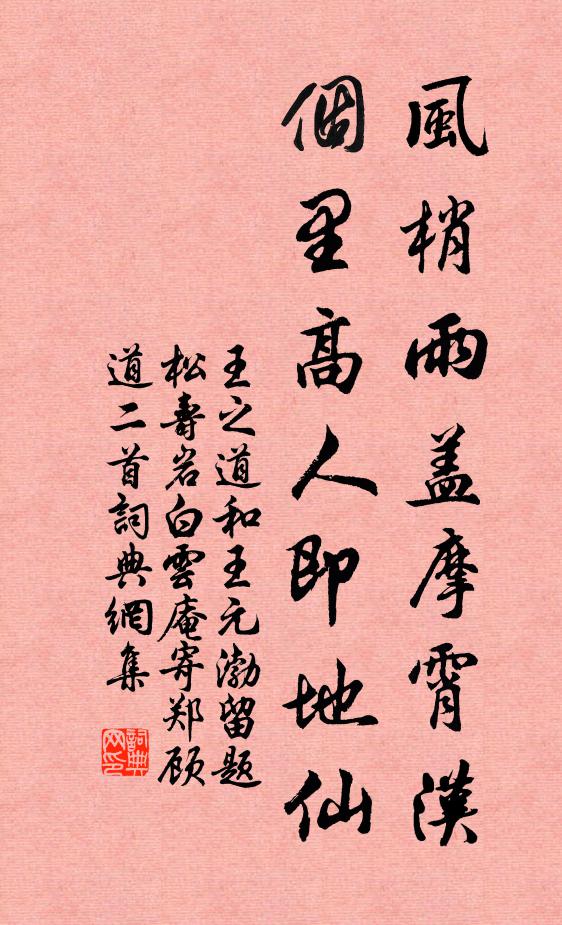 風梢雨蓋摩霄漢
個里高人即地仙
王之道和王元渤留題
松壽岩白雲庵寄郑顾
道二首詞典網集
詞典
网印